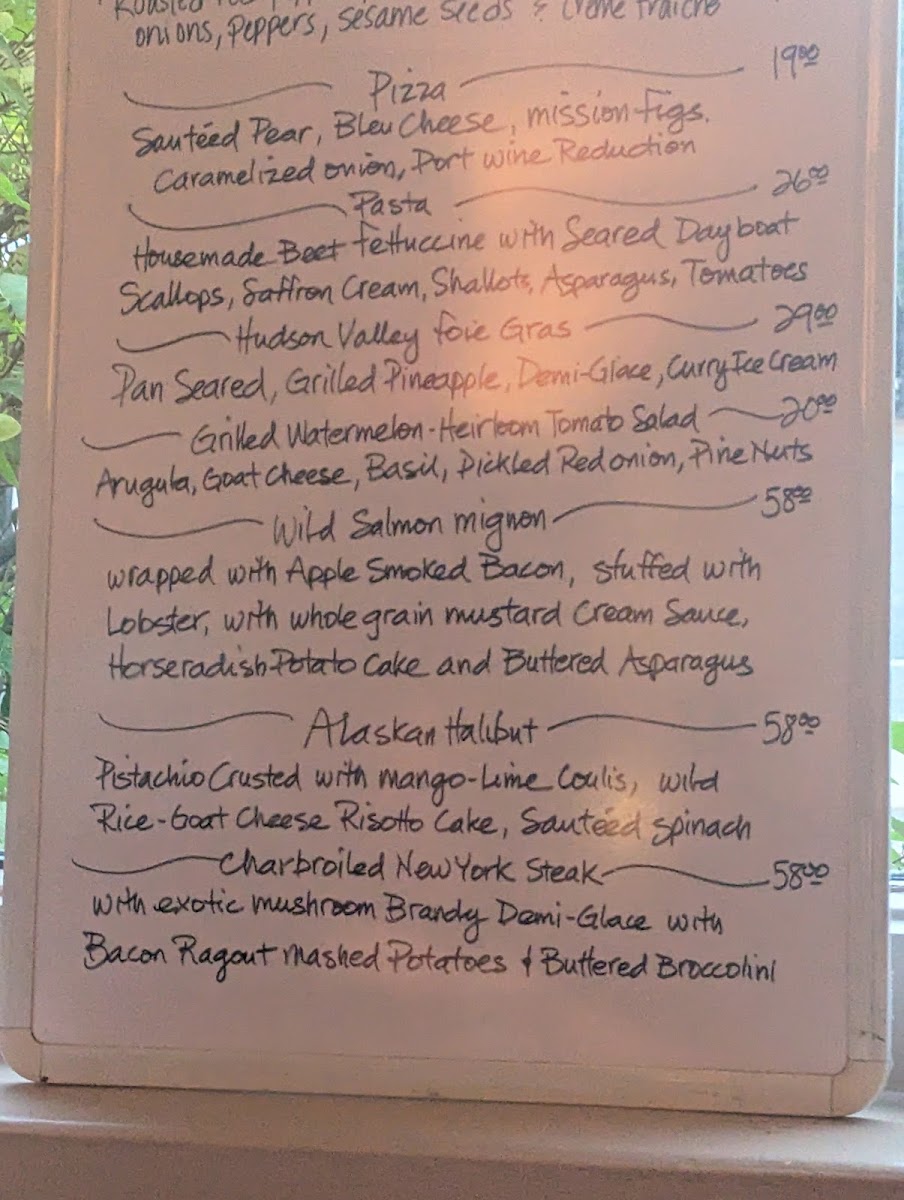 Roasted
onions, Peppers, Sesame Seeds & Crème fraîche
Pizza 19.00
Sautéed Pear, Bleu Cheese, mission figs.
Caramelized onion, Port wine Reduction
Pasta 26.00
Housemade Beet fettuccine with Seared Dayboat
Scallops, Saffron Cream, Shallots, Asparagus, Tomatoes
Hudson Valley foie Gras 29.00
Pan Seared, Grilled Pineapple, Demi-Glace, Curry Ice Cream
Grilled Watermelon-Heirloom Tomato Salad 20.00
Arugula, Goat Cheese, Basil, Pickled Red onion, Pine Nuts
Wild Salmon mignon 58.00
wrapped with Apple Smoked Bacon, stuffed with
Lobster, with whole grain mustard Cream Sauce,
Horseradish Potato Cake and Buttered Asparagus
Alaskan Halibut 58.00
Pistachio Crusted with mango-Lime Coulis, wild
Rice-Goat Cheese Risotto Cake, Sautéed spinach
Charbroiled New York Steak 58.00
with exotic mushroom Brandy Demi-Glace with
Bacon Ragout mashed Potatoes & Buttered Broccolini